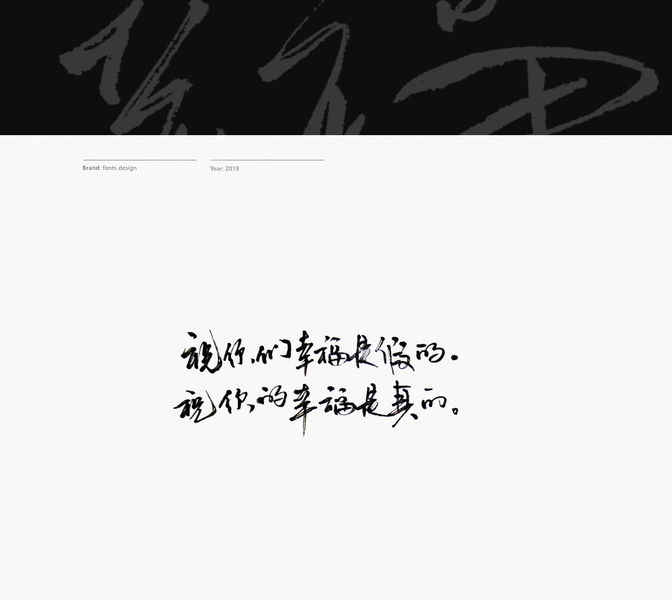 Brand: fonts design
Year: 2019
祝你们幸福是假的。
祝你的幸福是真的。